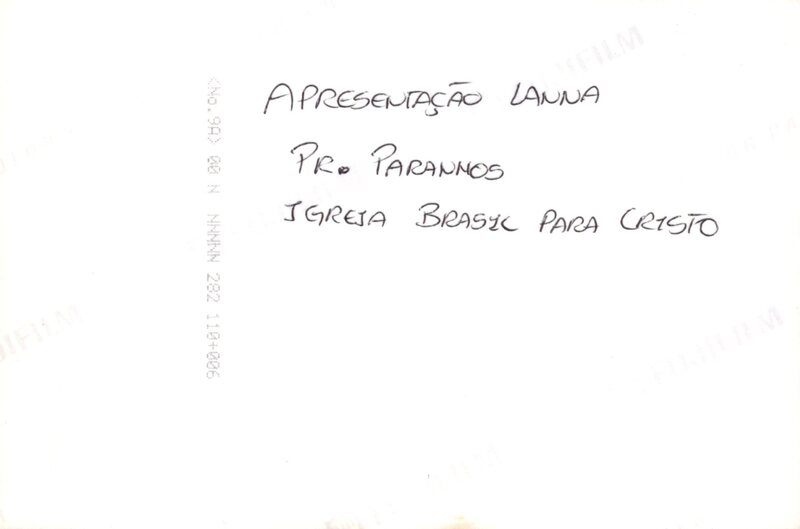 APRESENTAÇÃO LANNA
PR. PARANHOS
IGREJA BRASIL PARA CRISTO
<No.9A> 00 N NNNNN 282 110+006
FUJIFILM
FUJIFILM
FUJIFILM